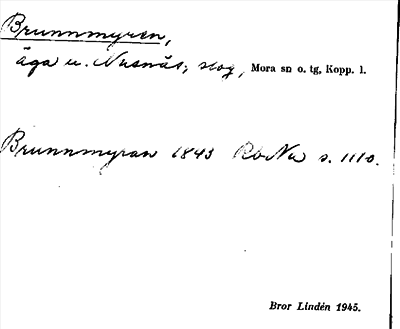 Brunnmyren,
äga u. Nusnäs, skog, Mora sn o. tg, Kopp. l.
Brunnmyran 1843 Rb Nu s. 1110.
Bror Lindén 1945.